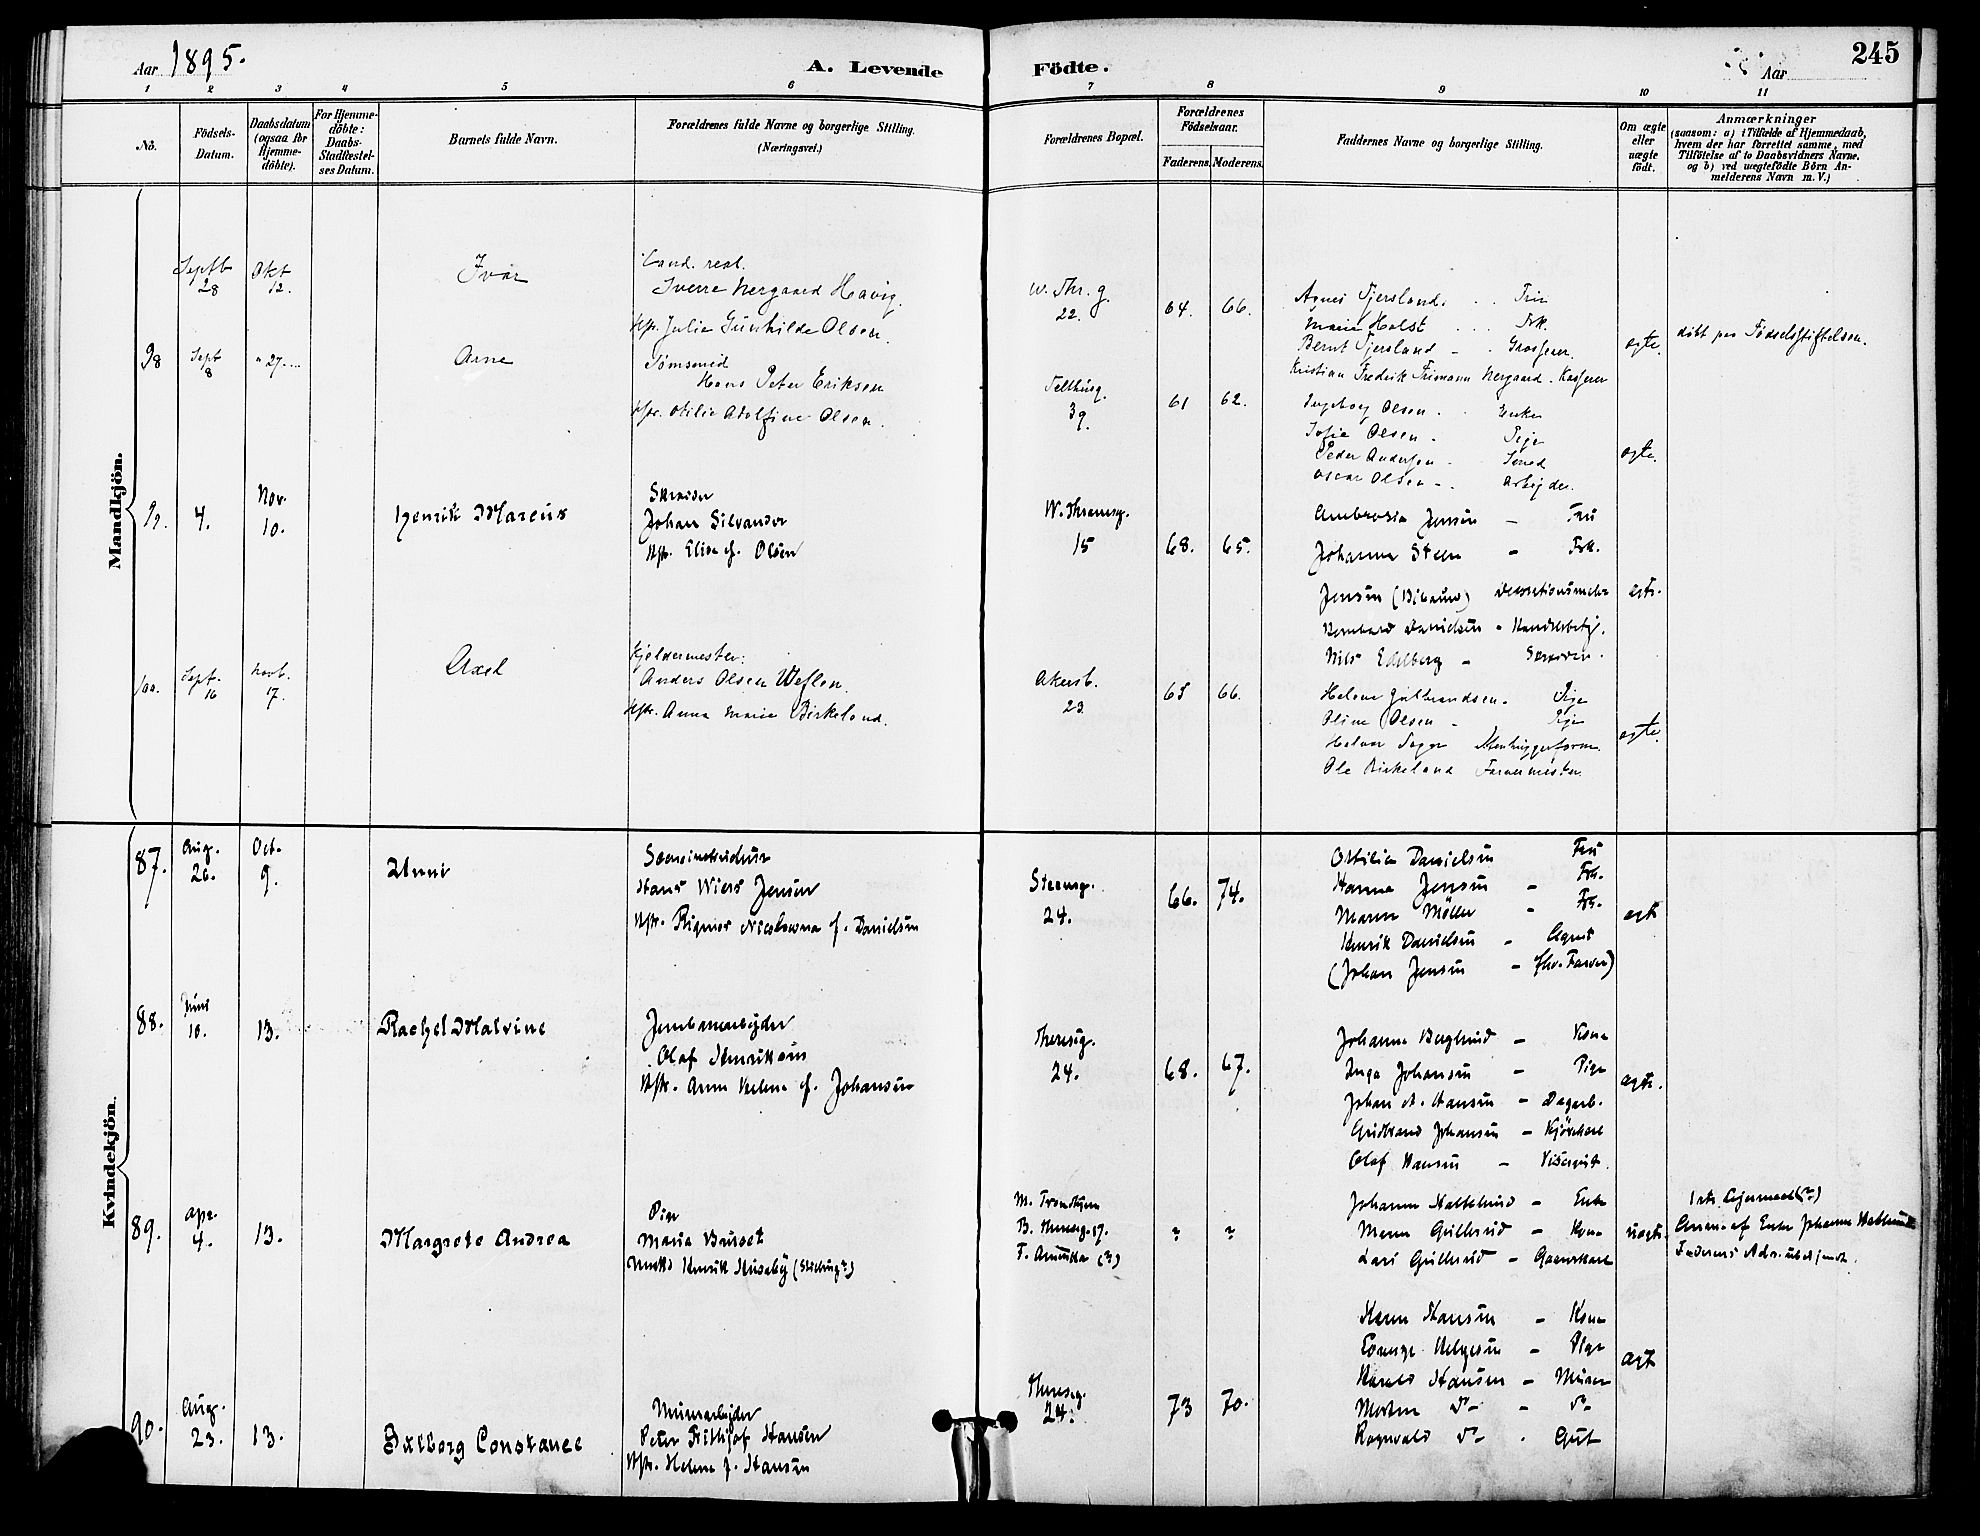 Aar 1895.
A. Levende Födte.
Aar
245
1 2 3 4 5 6 7 8 9 10 11
No.
Födsels-Datum.
Daabsdatum (ogsaa for Hjemme-döbte).
For Hjemme-döbte: Daabs-Stadfæstel-ses Datum.
Barnets fulde Navn.
Forældrenes fulde Navne og borgerlige Stilling.
(Næringsvei.)
Forældrenes Bopæl.
Forældrenes Födselsaar.
Faderens. Moderens.
Faddernes Navne og borgerlige Stilling.
Om ægte eller uægte födt.
Anmærkninger
(saasom: a) i Tilfælde af Hjemmedaab, hvem der har forrettet samme, med Tilföielse af to Daabsvidners Navne, og b) ved uægtefödte Börn An-melderens Navn m. V.)
Mandkjön.
Septb 28
Okt 12.
Ivar
Cand. real.
Sverre Nergaard Havig.
Hstr. Julie Gunhilde Olsen.
W. Thr. g. 22.
64. 66.
Agnes Fjersland. Frue
Marie Holst Frk.
Bernt Fjersland - Grosserer.
Kristian Fredrik Frimann Nergaard. Kasserer
ægte.
döbt paa Födselsstiftelsen.
98
Sept 8
" 27.
Arne
Hans Peter Eriksen
Hstr. Otilie Adolfine Olsen.
Telthusg. 39.
61 62.
Ingeborg Olsen. Enke
Sofie Olsen. Pige
Peder Andersen. Smed
Oscar Olsen - Arbejder.
ægte.
99.
4.
Nov. 10.
Henrik Marcus
Skrædder
Johan Silvander
Hstr. Elise f. Olsen
W. Thranesg. 15
68. 65.
Ambrosia Jensen - Fru
Johanne Steen - Frk.
Jensen
Bernhard Danielsen - Handelsbetj.
Nils Edelberg - Skrædder.
100.
Sept. 16
Novb. 17.
Axel
Kjeldermester:
Anders Olsen Weflen.
Hstr. Anna Marie Birkeland.
Akersb. 23
65 66.
Helene Gulbrandsen. Pige
Oline Olsen - Pige
Ole Birkeland Farvermester
ægte.
Kvindekjön.
87.
Aug. 26.
Oct. 9.
Unni
Hans Wiers Jensen
Hstr. Rigmor Nicoleowna f. Danielsen
Steensg. 24.
66. 74.
Ottilie Danielsen Fru
Hanna Jensen - Frk.
Maren Möller - Frk.
Henrik Danielsen - Agent
(Johan Jensen - Farver)
ægt
88.
Juni 10.
13.
Rachel Malvine
Jernbanearbejder
Olaf Henriksen
Hstr. Anne Helene f. Johansen
Theresg. 24.
68. 67.
Johanne Berglund - Kone
Inga Johansen - Pige
Johan A. Hansen - Dagarb.
Gudbrand Johansen - Kjörekarl
Olaf Hansen - Visergut.
ægte.
89.
Apr. 4.
13.
Margrete Andrea
Pige
Maria Bruset
Henrik Huseby
B. Theresg. 17.
F. Amerika (?)
? ?
Johanne Hallelund - Enke
Maren Gullerud - Kone
Lars Gullerud - Gaardskarl
uægte.
Anm. af Enke Johanne Hallelund
Faderens Adr. ubekjendt.
90.
Aug. 23.
13.
Dalborg Constance
Murerarbejder
Peter Fridtjof Hansen
Hstr. Helene f. Hansen
Theresg. 24.
73 70.
Karen Hansen - Kone
Lovenze Helgesen - Pige
Harald Hansen - Murer
Morten Do - Do
Ragnvald Do - Gut
ægt